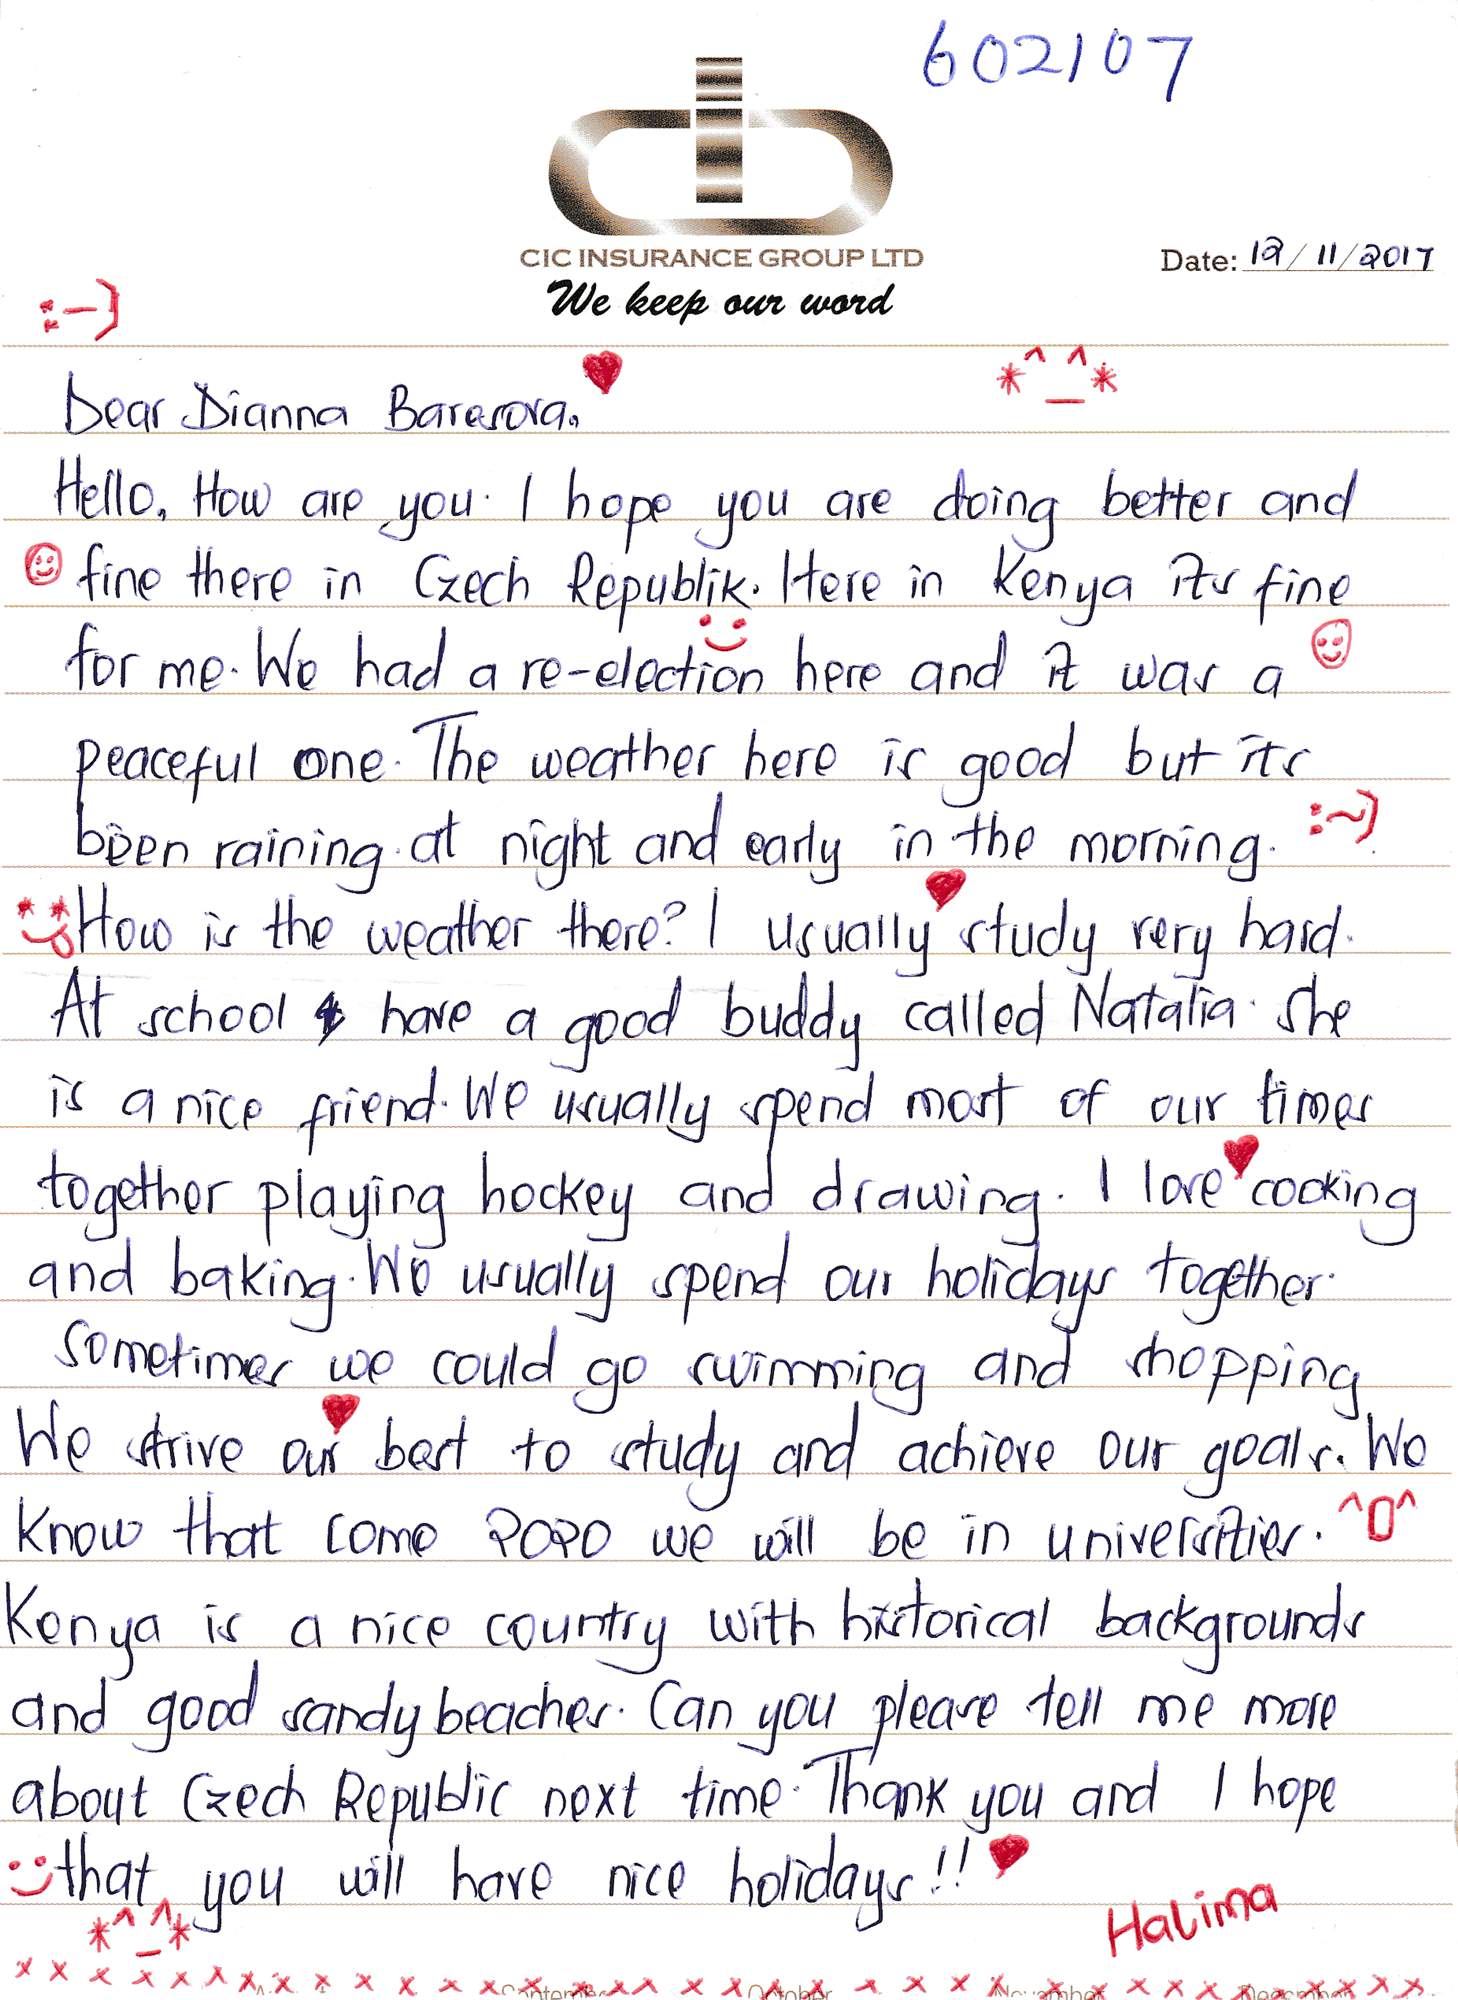 602107
CIC INSURANCE GROUP LTD
We keep our word
Date: 12/11/2017
:-)
*^_^*
Dear Dianna Baresova.
Hello, How are you. I hope you are doing better and
fine there in Czech Republik. Here in Kenya its fine
for me. We had a re-election here and it was a
peaceful one. The weather here is good but its
been raining at night and early in the morning. :~)
How is the weather there? I usually study very hard.
At school I have a good buddy called Natalia. She
is a nice friend. We usually spend most of our times
together playing hockey and drawing. I love cooking
and baking. We usually spend our holidays together.
Sometimes we could go swimming and shopping
We strive our best to study and achieve our goals. We
know that come 2020 we will be in universities. ^0^
Kenya is a nice country with historical backgrounds
and good sandy beaches. Can you please tell me more
about Czech Republic next time. Thank you and I hope
that you will have nice holidays!!
*^_^*
Halima
x x x x x x x x x x x x x x x x x x x x x x x x x x x x x x x x x x x x
September October November December